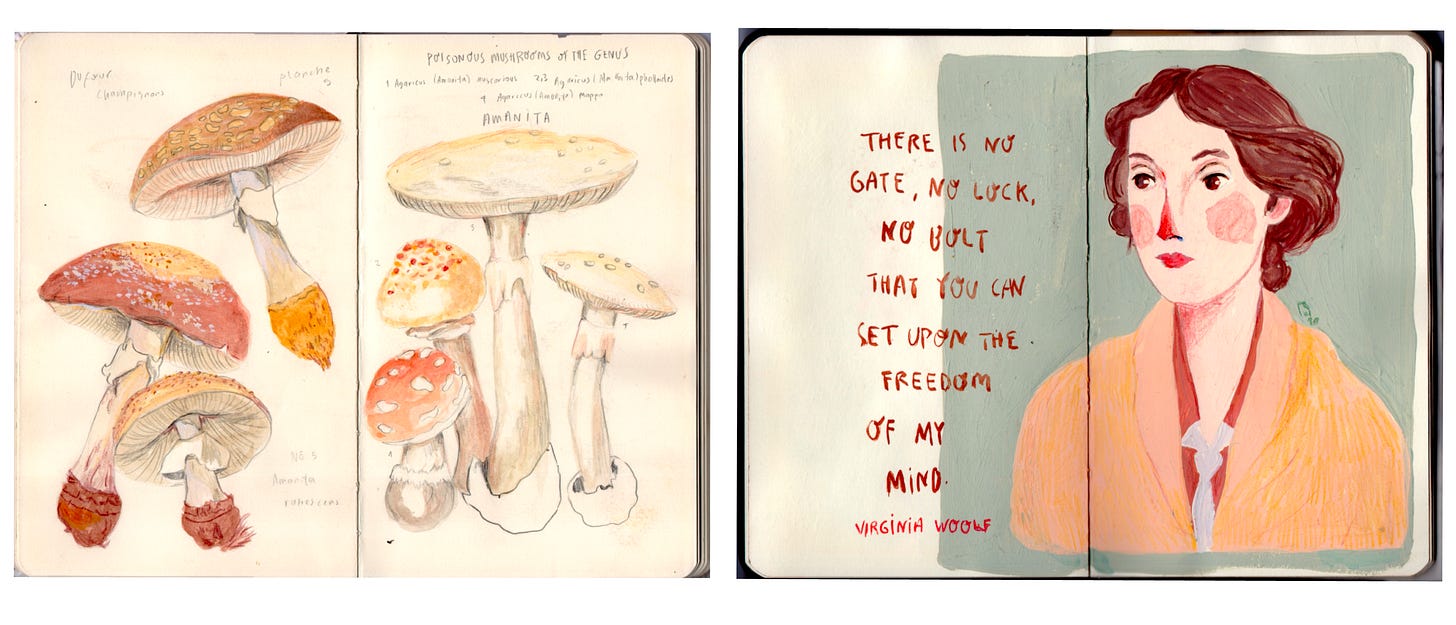 Dufour
Champignons
planche
5
POISONOUS MUSHROOMS OF THE GENUS
1 Agaricus (Amanita) muscarius 2,3 Agaricus (Amanita) phalloides
4 Agaricus (Amanita) mappa
AMANITA
5
2
4
1
Nº 5
Amanita
rubescens
THERE IS NO
GATE, NO LOCK,
NO BOLT
THAT YOU CAN
SET UPON THE
FREEDOM
OF MY
MIND.
VIRGINIA WOOLF